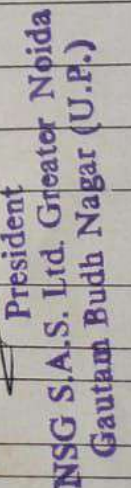 President
NSG S.A.S. Ltd. Greater Noida
Gautam Budh Nagar (U.P.)